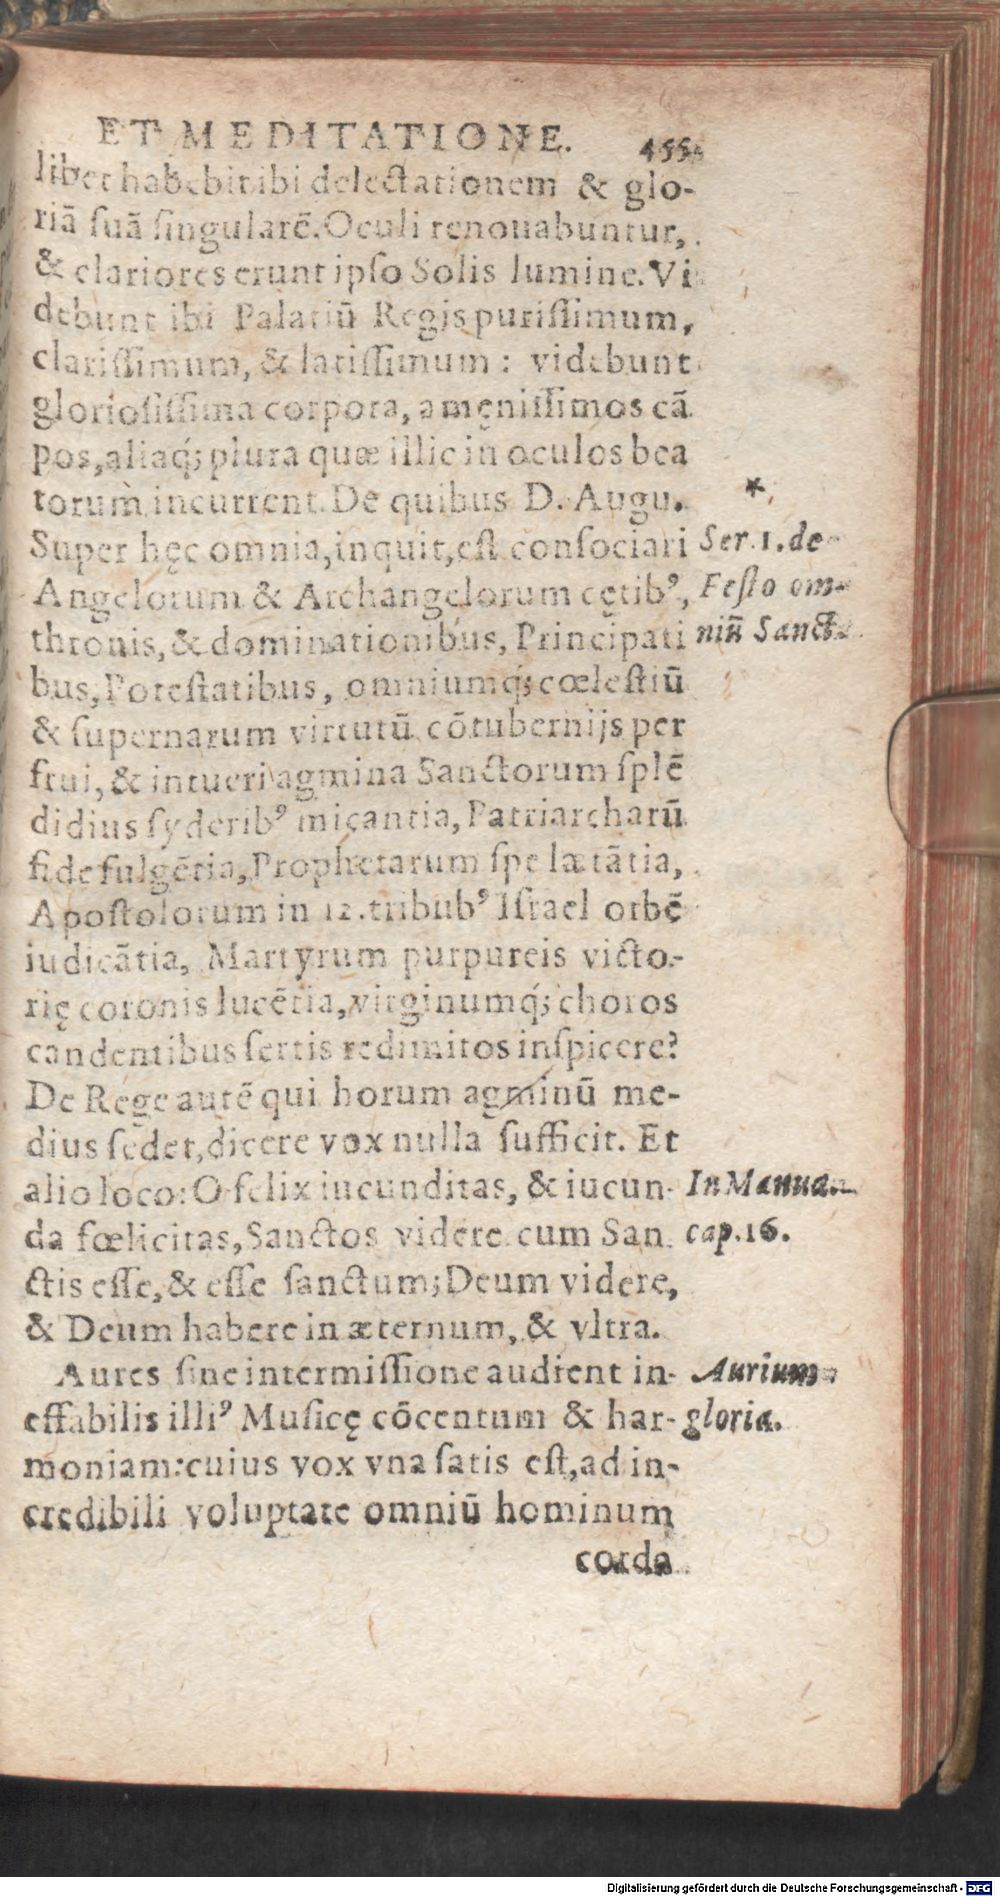 ET MEDITATIONE. 455
libet habebit ibi delectationem & glo-
riã ſuã ſingularẽ. Oculi renouabuntur,
& clariores erunt ipſo Solis lumine. Vi
debunt ibi Palatiũ Regis puriſſimum,
clariſſimum, & latiſſimum: videbunt
glorioſiſſima corpora, amęniſſimos cã
pos, aliaq́; plura quæ illic in oculos bea
torum incurrent. De quibus D. Augu.
*
Super hęc omnia, inquit, eſt conſociari
Ser. 1. de
Angelorum & Archangelorum cętibꝰ,
Feſto om-
thronis, & dominationibus, Principati
niũ Sanct.
bus, Poteſtatibus, omniumq́; cœleſtiũ
& ſupernarum virtutũ cõtubernijs per
frui, & intueri agmina Sanctorum ſplẽ
didius ſyderibꝰ micantia, Patriarcharũ
fide fulgẽtia, Prophetarum ſpe lætãtia,
Apoſtolorum in 12. tribubꝰ Iſrael orbẽ
iudicãtia, Martyrum purpureis victo-
rię coronis lucẽtia, virginumq́; choros
candentibus ſertis redimitos inſpicere?
De Rege autẽ qui horum agminũ me-
dius ſedet, dicere vox nulla ſufficit. Et
alio loco: O felix iucunditas, & iucun-
In Manua.
da fœlicitas, Sanctos videre cum San
cap. 16.
ctis eſſe, & eſſe ſanctum; Deum videre,
& Deum habere in æternum, & vltra.
Aures ſine intermiſſione audient in-
Aurium
effabilis illiꝰ Muſicę cõcentum & har-
gloria.
moniam: cuius vox vna ſatis eſt, ad in-
credibili voluptate omniũ hominum
corda
Digitalisierung gefördert durch die Deutsche Forschungsgemeinschaft - DFG